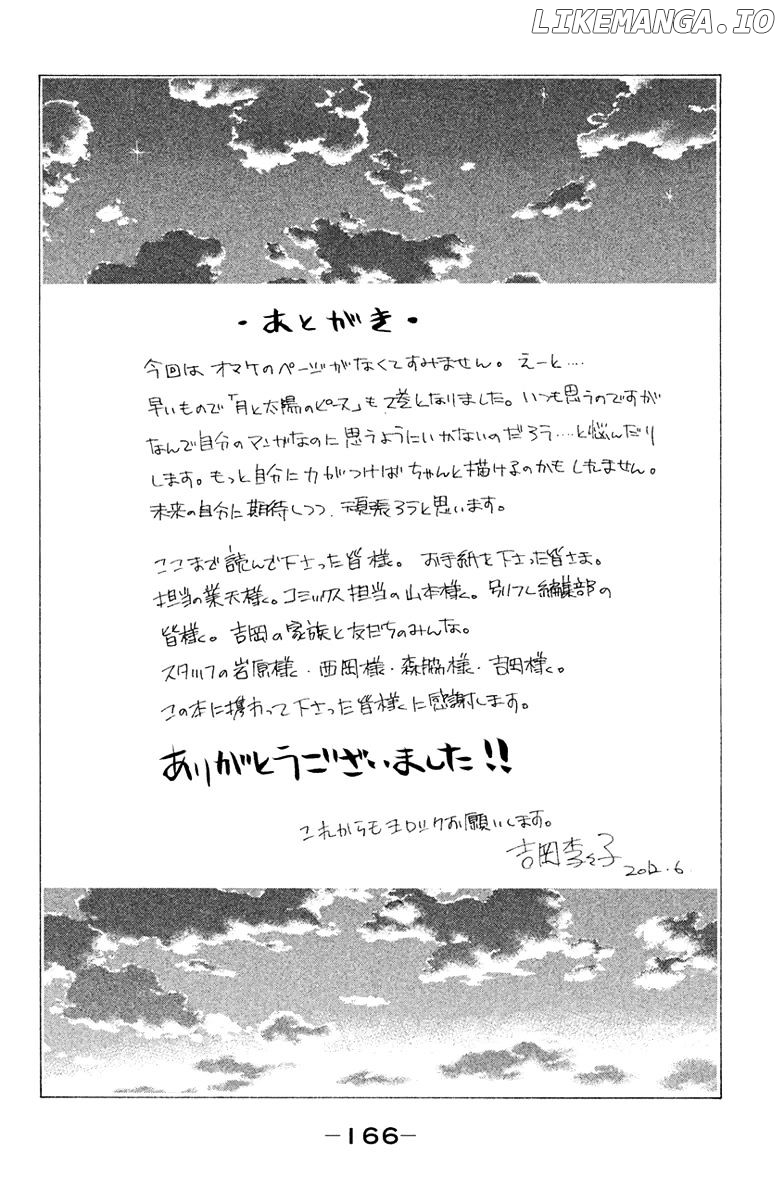 LIKEMANGA.IO
・あとがき・
今回は オマケのページがなくてすみません。 えーと‥‥
早いもので「月と太陽のピース」も 2巻となりました。いつも思うのですが
なんで自分のマンガなのに思うようにいかないのだろう‥‥と悩んだり
します。もっと自分に力がつけばちゃんと描けるのかもしれません。
未来の自分に期待しつつ、頑張ろうと思います。
ここまで読んで下さった皆様。 お手紙を下さった皆さま。
担当の業天様。コミックス担当の山本様。別フレ編集部の
皆様。吉岡の家族と友だちのみんな。
スタッフの岩原様・西岡様・森脇様・吉田様。
この本に携わって下さった皆様に感謝します。
ありがとうございました!!
これからもヨロシクお願いします。
吉岡李々子 2012.6
-166-